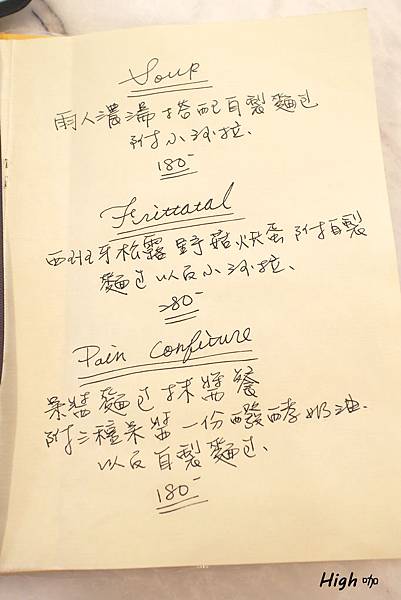 Soup
雨人濃湯搭配自製麵包
附小沙拉、
180-
Frittatal
西班牙松露野菇烘蛋附自製
麵包以及小沙拉、
280-
Pain Confiture
果醬麵包抹醬餐
附三種果醬一份醱酵奶油、
以及自製麵包、
180-
High 咖